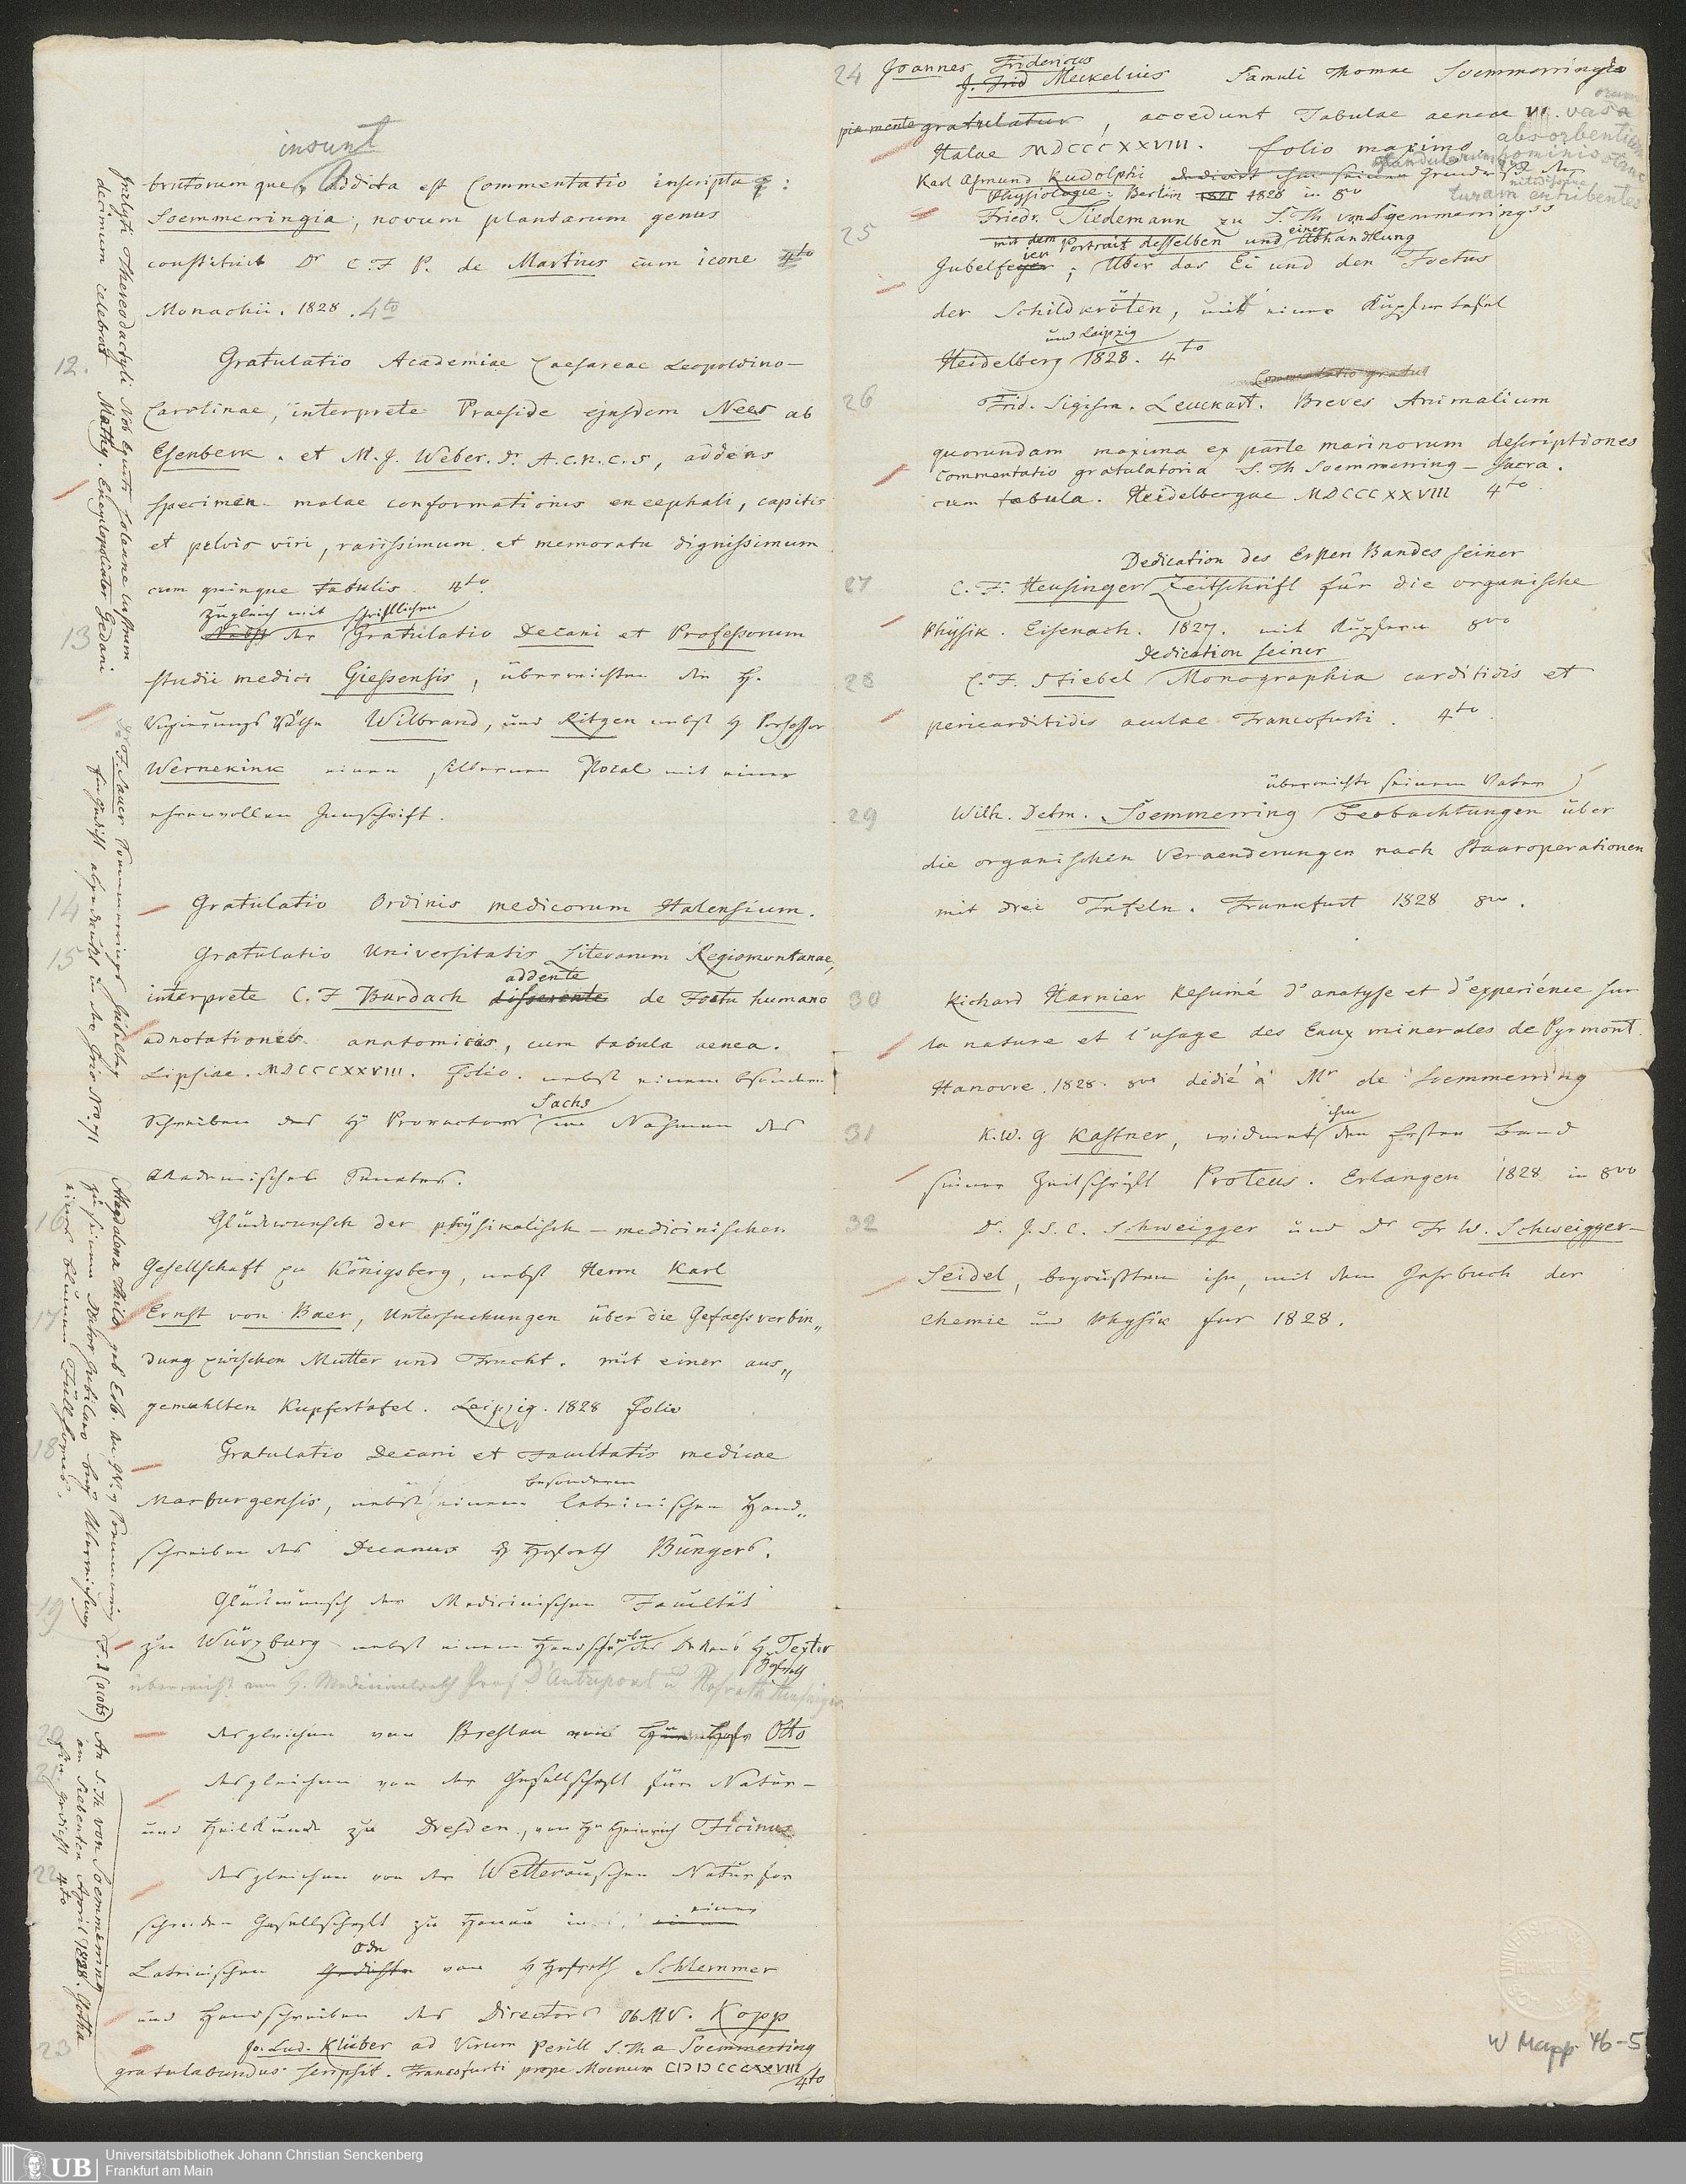 insunt
brictorumque, addita est Commentatio inscripta :
Soemmerringia, novum plantarum genus
constituit Dr C. F P. de Martius cum icone 4to
Monachii. 1828. 4to
12. Gratulatio Academiae Caesareae Leopoldino-
Carolinae, interprete Praeside ejusdem Nees ab
Esenbeck. et M. J. Weber. Dr. A.C.N.C.S, addens
specimen malae conformationis encephali, capitis
et pelvis viri, rarissimum et memoratu dignissimum
cum quinque tabulis. 4to.
zugleich mit schriftlichen
13 Nebst der Gratulatio Decani et Professorum
studii medici Giessensis, überreichten die H.
Regierungs Räthe Wilbrand, und Ritgen nebst H Professor
Wernekink einen silbernen Pocal mit einer
ehrenvollen Innschrift.
14 Gratulatio Ordinis medicorum Halensium.
15 Gratulatio Universitatis Literarum Regiomontanae,
addente
interprete C. F Burdach disserente de Foetu humano
adnotationes anatomicas, cum tabula aenea.
Lipsiae. MDCCCXXVIII. Folio. nebst einem besondern
Sachs
Schreiben des H Prorectors im Nahmen des
akademischen Senates.
16 Glückwunsch der physikalisch-medicinischen
Gesellschaft zu Königsberg, nebst Herrn Karl
17 Ernst von Baer, Untersuchungen über die Gefaessverbin„
dung zwischen Mutter und Frucht. mit einer aus„
gemahlten Kupfertafel. Leipzig. 1828 Folio
18 Gratulatio Decani et Facultatis medicae
besonderen
Marburgensis, nebst einem lateinischen Hand„
schreiben des Decanus H Hofrath Büngers.
19 Glückwunsch der Medicinischen Facultät
zu Würzburg nebst einem Handschreiben des Dekans H Textor
Hofrath
überreicht von H. Medicinalrath Prof D'Outrepont u Hofrath Heusinger
20 desgleichen von Breslau von Otto
21 desgleichen von der Gesellschaft für Natur-
und Heilkunde zu Dresden, von Hn Heinrich Ficinus
22 desgleichen von der Wetterauschen Naturfor
schenden Gesellschaft zu Hanau in einer
Ode
Lateinischen Gedichte von H Hofrath Schlemmer
und Handschreiben des Directors Kopp
23 Jo. Lud. Klüber ad Virum Perill S. Th a Soemmerring
gratulabundus scripsit. Francofurti prope Moenum CIƆIƆCCCXXVIII
4to
decimum celebrat Mathy. Gedani
Dr F. Lucae Soemmerrings Jubeltag
ein Gedicht abgedruckt in der Iris No. 71
Magdalena Thilo geb Erb. Soemmerring
einer Blumen Füllhornes.
F. J (acobs) An S. Th von Soemmerring
am siebenten April 1828. Gotha
Ein Gedicht 4to
24 Joannes Fridericus
J. Frid Meckelius Samuli Thomae Soemmerringio
pia mente gratulatur, accedunt Tabulae aeneae VI. vasa
absorbentium
Halae MDCCCXXVIII. folio maximo.
Karl Asmund Rudolphi dedicirt ihm seinen Grundriss der
Physiologie: Berlin 1821 1828 in 8vo
nitidissime
turam exhibentes
25 Friedr. Tiedemann zu S. Th von Soemmerrings
mit dem Portrait desselben und einer Abhandlung
Jubelfeier; Über das Ei und den Foetus
der Schildkröten, mit einer Kupfertafel
und Leipzig
Heidelberg 1828. 4to
Commentatio gratul
26 Frid. Sigism. Leuckart. Breves Animalium
quorundam maxima ex parte marinorum descriptiones
Commentatio gratulatoria S. Th Soemmerring - sacra.
cum tabula. Heidelbergae MDCCCXXVIII 4to
Dedication des Ersten Bandes seiner
27 C. F. Heusinger Zeitschrift für die organische
Physik. Eisenach. 1827. mit Kupfern 8vo
Dedication seiner
28 C. F. Stiebel Monographia carditidis et
pericarditidis acutae Francofurti. 4to.
überreichte seinem Vater
29 Wilh. Detm. Soemmerring Beobachtungen über
die organischen Veraenderungen nach Staaroperationen
mit drei Tafeln. Frankfurt 1828 8vo.
30 Richard Harnier Resumé d'analyse et d'experiénce sur
la nature et l'usage des Eaux minerales de Pyrmont.
Hanovre. 1828. 8vo dédié à Mr de Soemmerring
ihm
31 K. W. G Kastner, widmet den Ersten Band
seiner Zeitschrift Proteus. Erlangen 1828 in 8vo
32 Dr. J. S. C. Schweigger und Dr Fr W. Schweigger-
Seidel, begrüssten ihn, mit dem Jahrbuch der
Chemie u Physik fur 1828.
W Mapp. 46-5
UB Universitätsbibliothek Johann Christian Senckenberg
Frankfurt am Main